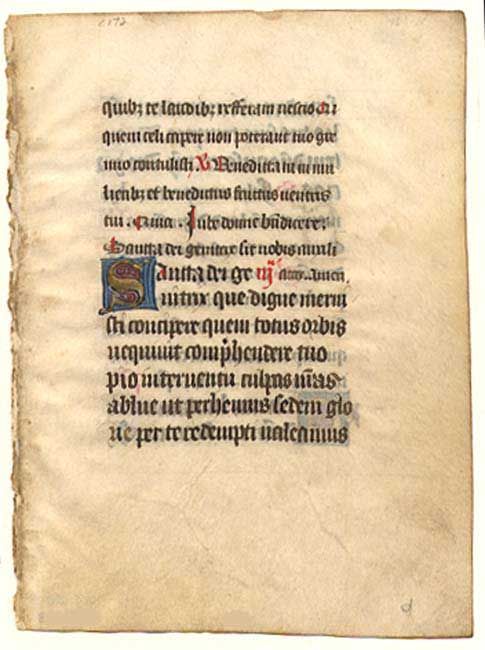 quibz te laudibz refferam nescio Qr
quem celi capere non poterant tuo gre
mio contulisti. V Benedicta tu in mu
lieribz et benedictus fructus uentris
tui. Quia. Jube domne bndicere.
Sancta dei genitrix sit nobis auxili
Sancta dei ge iij atrix. Amen.
nitrix que digne meru
isti concipere quem totus orbis
nequiuit comphendere tuo
pio interuentu culpas nras
ablue ut perhennis sedem glo
rie per te redempti ualeamus
d